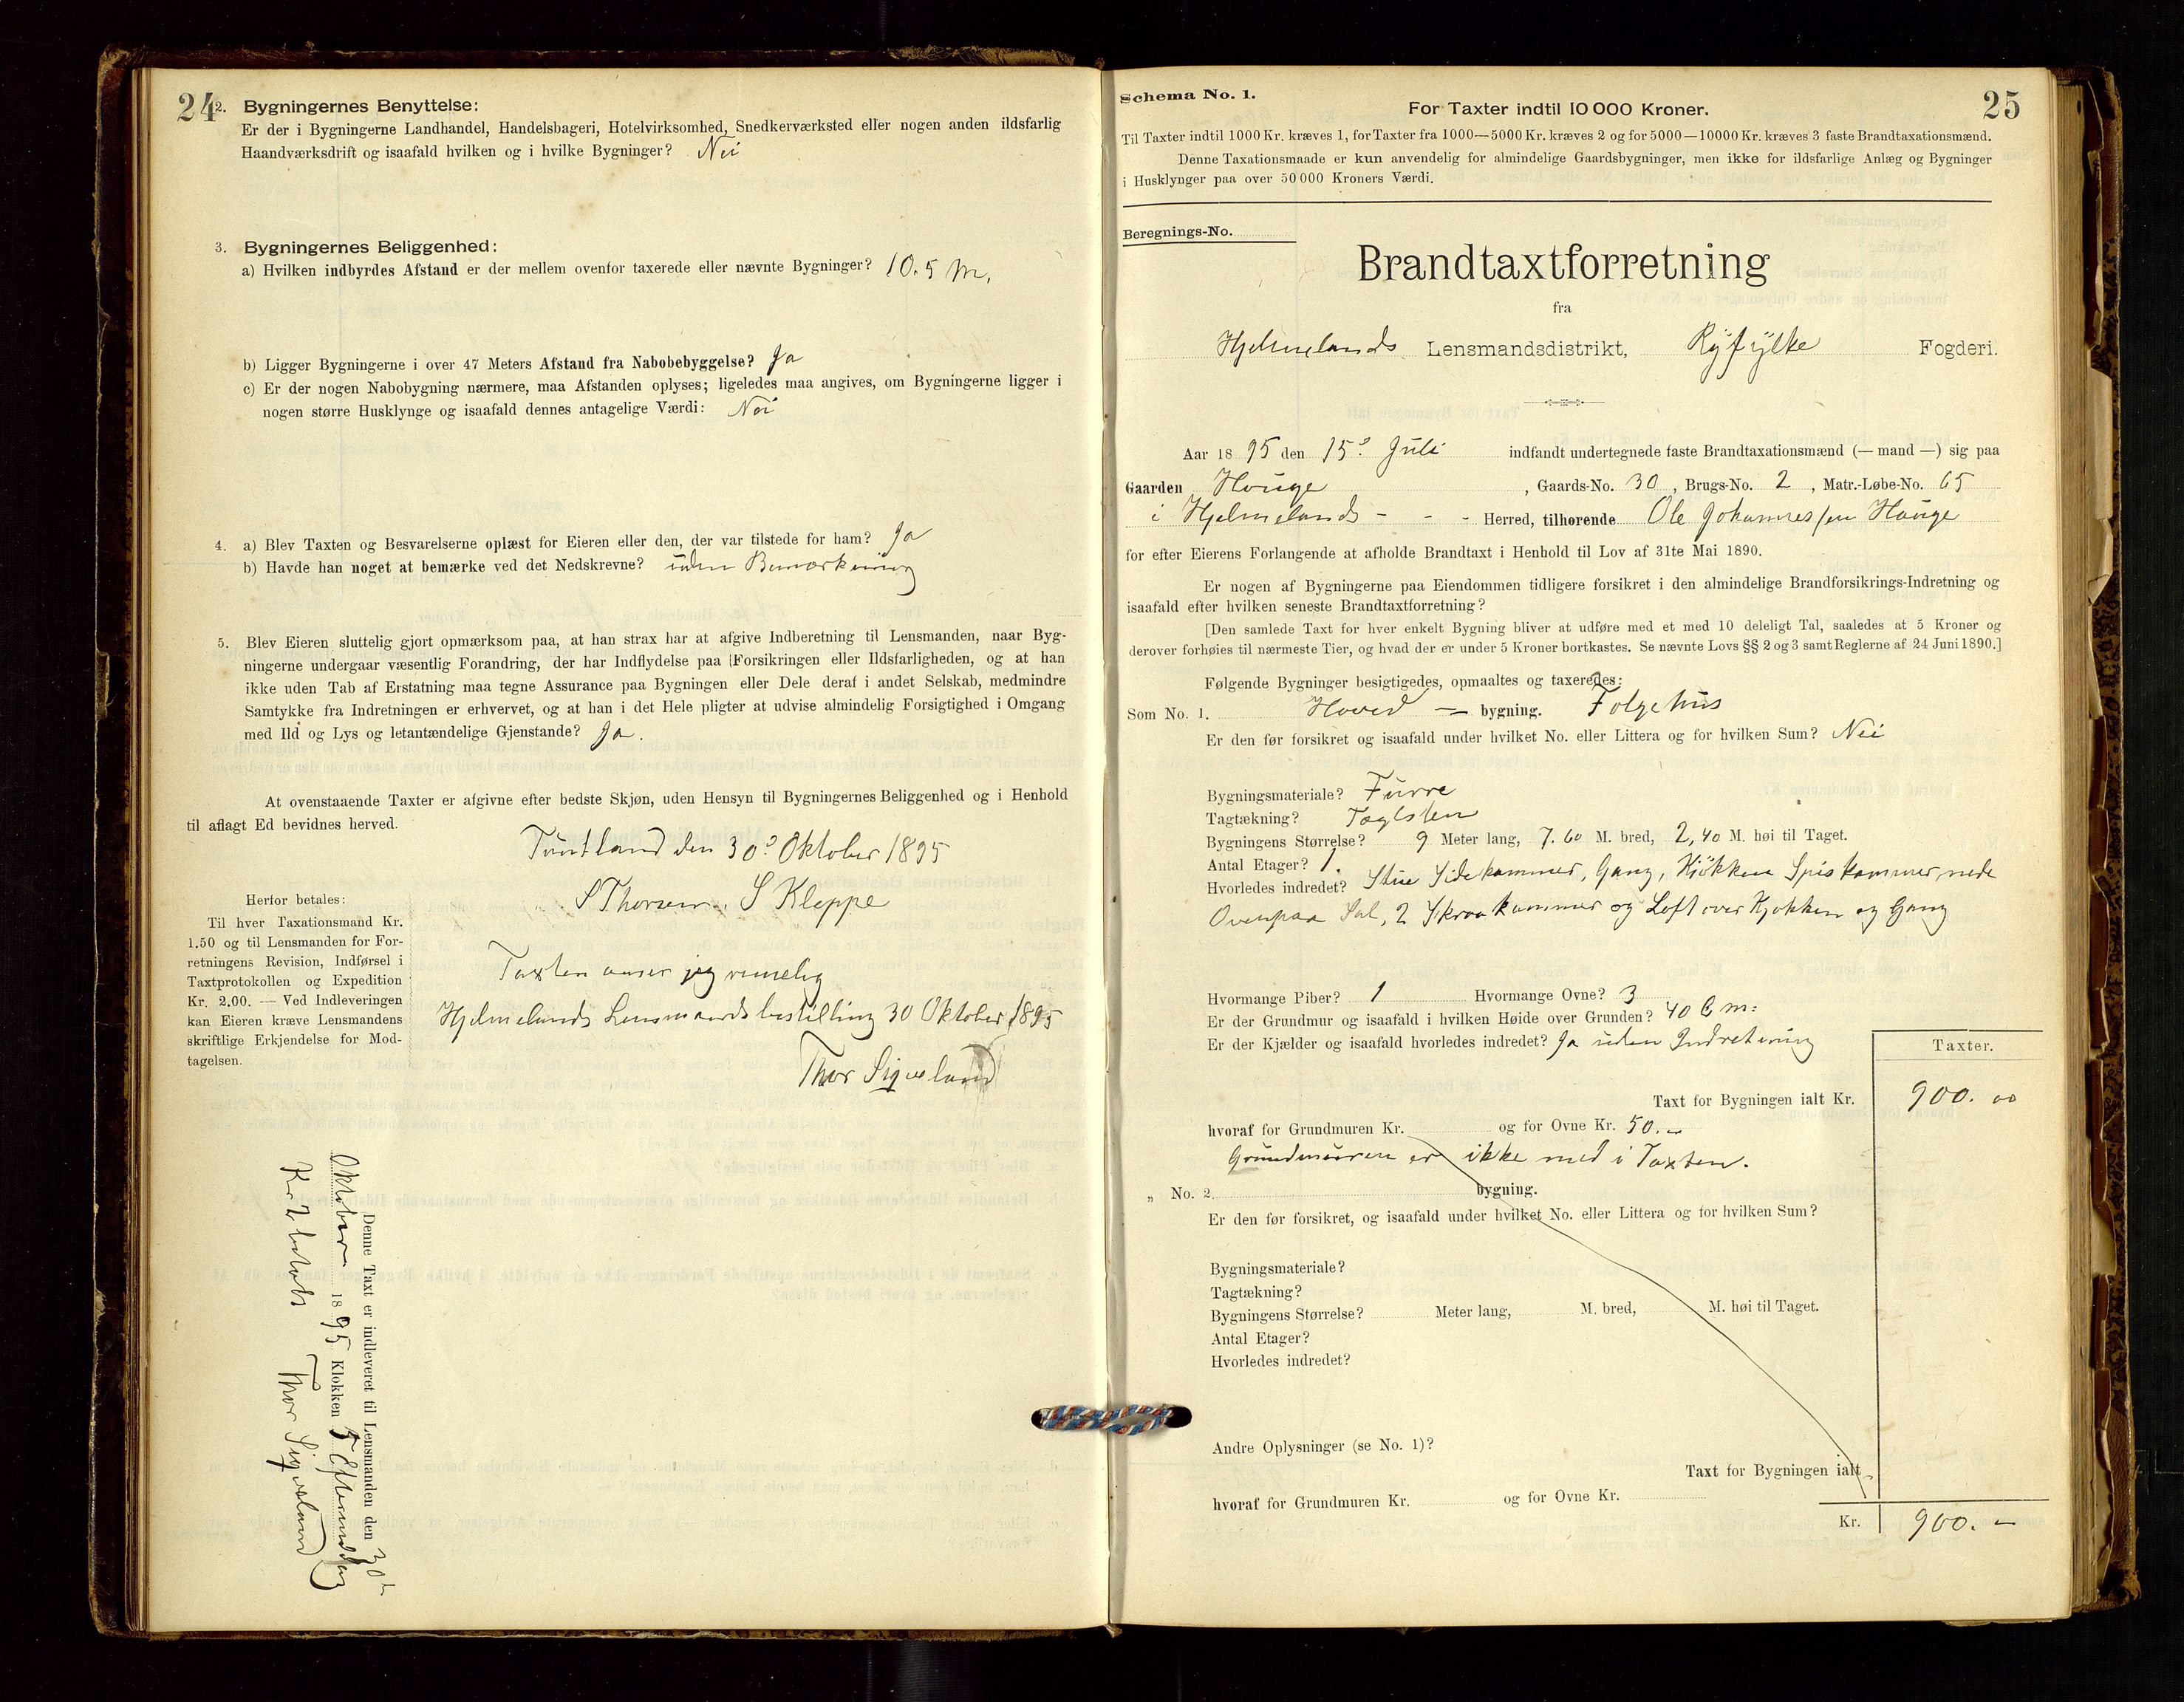 24
2. Bygningernes Benyttelse:
Er der i Bygningerne Landhandel, Handelsbageri, Hotelvirksomhed, Snedkerværksted eller nogen anden ildsfarlig
Haandværksdrift og isaafald hvilken og i hvilke Bygninger? Nei
3. Bygningernes Beliggenhed:
a) Hvilken indbyrdes Afstand er der mellem ovenfor taxerede eller nævnte Bygninger? 10.5 m.
b) Ligger Bygningerne i over 47 Meters Afstand fra Nabobebyggelse? Ja
c) Er der nogen Nabobygning nærmere, maa Afstanden oplyses; ligeledes maa angives, om Bygningerne ligger i
nogen større Husklynge og isaafald dennes antagelige Værdi: Nei
4. a) Blev Taxten og Besvarelserne oplæst for Eieren eller den, der var tilstede for ham? Ja
b) Havde han noget at bemærke ved det Nedskrevne? uden Bemærkning
5. Blev Eieren sluttelig gjort opmærksom paa, at han strax har at afgive Indberetning til Lensmanden, naar Byg-
ningerne undergaar væsentlig Forandring, der har Indflydelse paa Forsikringen eller Ildsfarligheden, og at han
ikke uden Tab af Erstatning maa tegne Assurance paa Bygningen eller Dele deraf i andet Selskab, medmindre
Samtykke fra Indretningen er erhvervet, og at han i det Hele pligter at udvise almindelig Forsigtighed i Omgang
med Ild og Lys og letantændelige Gjenstande? Ja.
At ovenstaaende Taxter er afgivne efter bedste Skjøn, uden Hensyn til Bygningernes Beliggenhed og i Henhold
til aflagt Ed bevidnes herved.
Tuntland den 30. Oktober 1895
S Thorsen. S Kleppe
Herfor betales:
Til hver Taxationsmand Kr.
1.50 og til Lensmanden for For-
retningens Revision, Indførsel i
Taxtprotokollen og Expedition
Kr. 2.00. — Ved Indleveringen
kan Eieren kræve Lensmandens
skriftlige Erkjendelse for Mod-
tagelsen.
Taxten anser jeg rimelig
Hjelmelands Lensmandsbestilling 30 Oktober 1895
Thor Sigveland
Denne Taxt er indleveret til Lensmanden den 30te
Oktober 1895 Klokken 5 Eftermiddag
Kr 2 betalt Thor Sigveland
Schema No. 1.
For Taxter indtil 10 000 Kroner.
25
Til Taxter indtil 1000 Kr. kræves 1, for Taxter fra 1000—5000 Kr. kræves 2 og for 5000—10000 Kr. kræves 3 faste Brandtaxationsmænd.
Denne Taxationsmaade er kun anvendelig for almindelige Gaardsbygninger, men ikke for ildsfarlige Anlæg og Bygninger
i Husklynger paa over 50 000 Kroners Værdi.
Beregnings-No.
Brandtaxtforretning
fra
Hjelmelands Lensmandsdistrikt, Ryfylke Fogderi.
Aar 1895 den 15. Juli indfandt undertegnede faste Brandtaxationsmænd (— mand —) sig paa
Gaarden Houge, Gaards-No. 30, Brugs-No. 2, Matr.-Løbe-No. 65
i Hjelmelands - - - Herred, tilhørende Ole Johannessen Houge
for efter Eierens Forlangende at afholde Brandtaxt i Henhold til Lov af 31te Mai 1890.
Er nogen af Bygningerne paa Eiendommen tidligere forsikret i den almindelige Brandforsikrings-Indretning og
isaafald efter hvilken seneste Brandtaxtforretning?
[Den samlede Taxt for hver enkelt Bygning bliver at udføre med et med 10 deleligt Tal, saaledes at 5 Kroner og
derover forhøies til nærmeste Tier, og hvad der er under 5 Kroner bortkastes. Se nævnte Lovs §§ 2 og 3 samt Reglerne af 24 Juni 1890.]
Følgende Bygninger besigtigedes, opmaaltes og taxeredes:
Som No. 1. Hoved — bygning. Folgehus
Er den før forsikret og isaafald under hvilket No. eller Littera og for hvilken Sum? Nei
Bygningsmateriale? Furre
Tagtækning? Taglsten
Bygningens Størrelse? 9 Meter lang, 7.60 M. bred, 2,40 M. høi til Taget.
Antal Etager? 1.
Hvorledes indredet? Stue Sidekammer, Gang, Kjökken Spiskammer, nede
Ovenpaa Sal, 2 Skraakammer og Loft over Kjøkken og Gang
Hvormange Piber? 1 Hvormange Ovne? 3
Er der Grundmur og isaafald i hvilken Høide over Grunden? 40 Cm:
Er der Kjælder og isaafald hvorledes indredet? Ja uden Indretning
Taxter.
Taxt for Bygningen ialt Kr. 900. 00
hvoraf for Grundmuren Kr. og for Ovne Kr. 50.-
Grundmuren er ikke med i Taxten.
„ No. 2 bygning.
Er den før forsikret, og isaafald under hvilket No. eller Littera og for hvilken Sum?
Bygningsmateriale?
Tagtækning?
Bygningens Størrelse? Meter lang, M. bred, M. høi til Taget.
Antal Etager?
Hvorledes indredet?
Andre Oplysninger (se No. 1)?
Taxt for Bygningen ialt
hvoraf for Grundmuren Kr. og for Ovne Kr.
Kr. 900. -